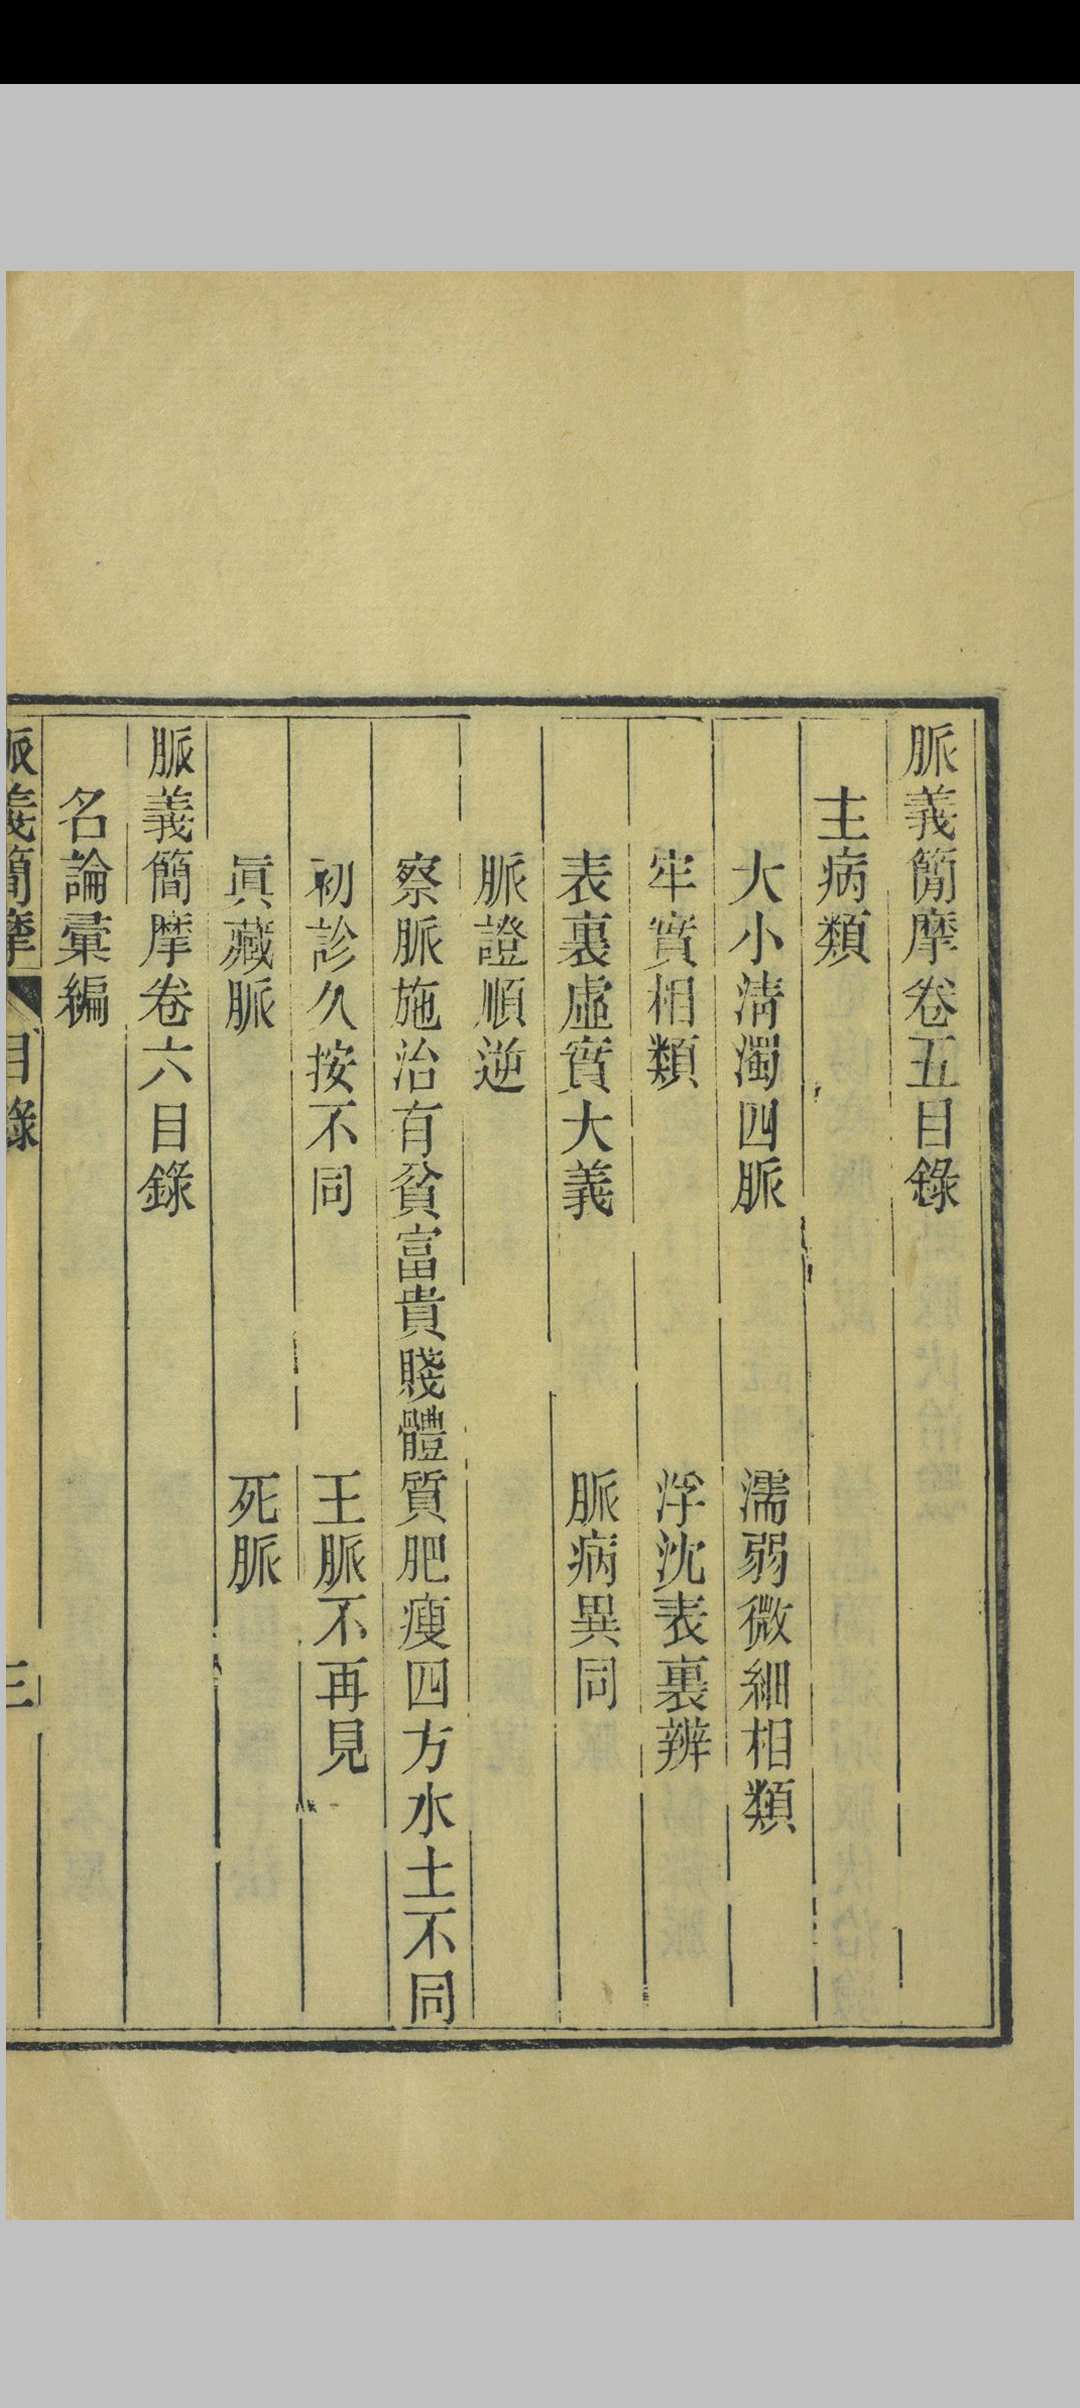 脈義簡摩卷五目錄
主病類
大小清濁四脈　濡弱微細相類
牢實相類　浮沈表裏辨
表裏虛實大義　脈病異同
脈證順逆
察脈施治有貧富貴賤體質肥瘦四方水土不同
初診久按不同　王脈不再見
眞藏脈　死脈
脈義簡摩卷六目錄
名論彙編
脈義簡摩　目錄　三